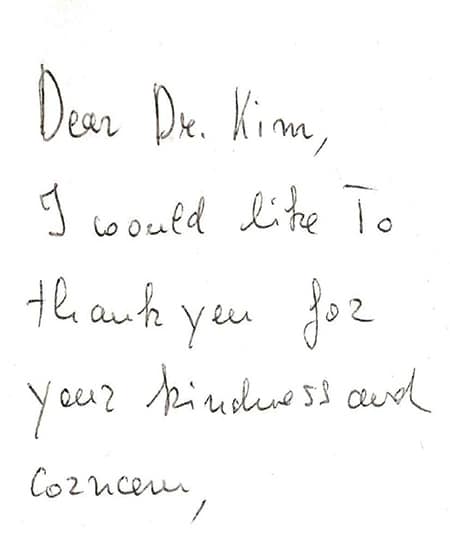 Dear Dr. Kim,
I would like To
thank you for
your kindness and
concern,